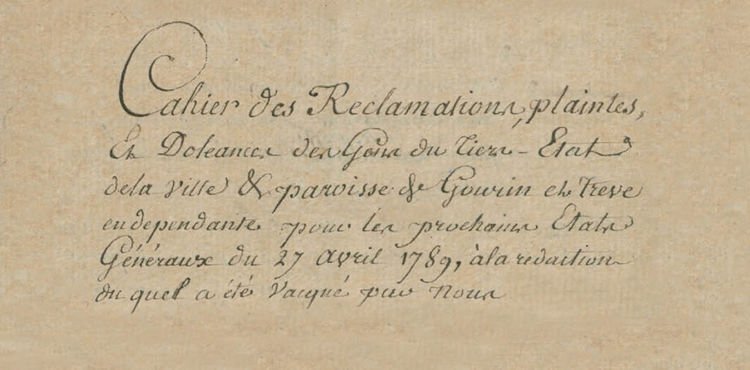 Cahier des Reclamations, plaintes,
Et Doleances des Gens du Tiers-Etat
dela ville & paroisse de Gourin et Treve
en dependante pour les prochains Etats
Généraux du 27 avril 1789, à la redaction
du quel a été vacqué par nous